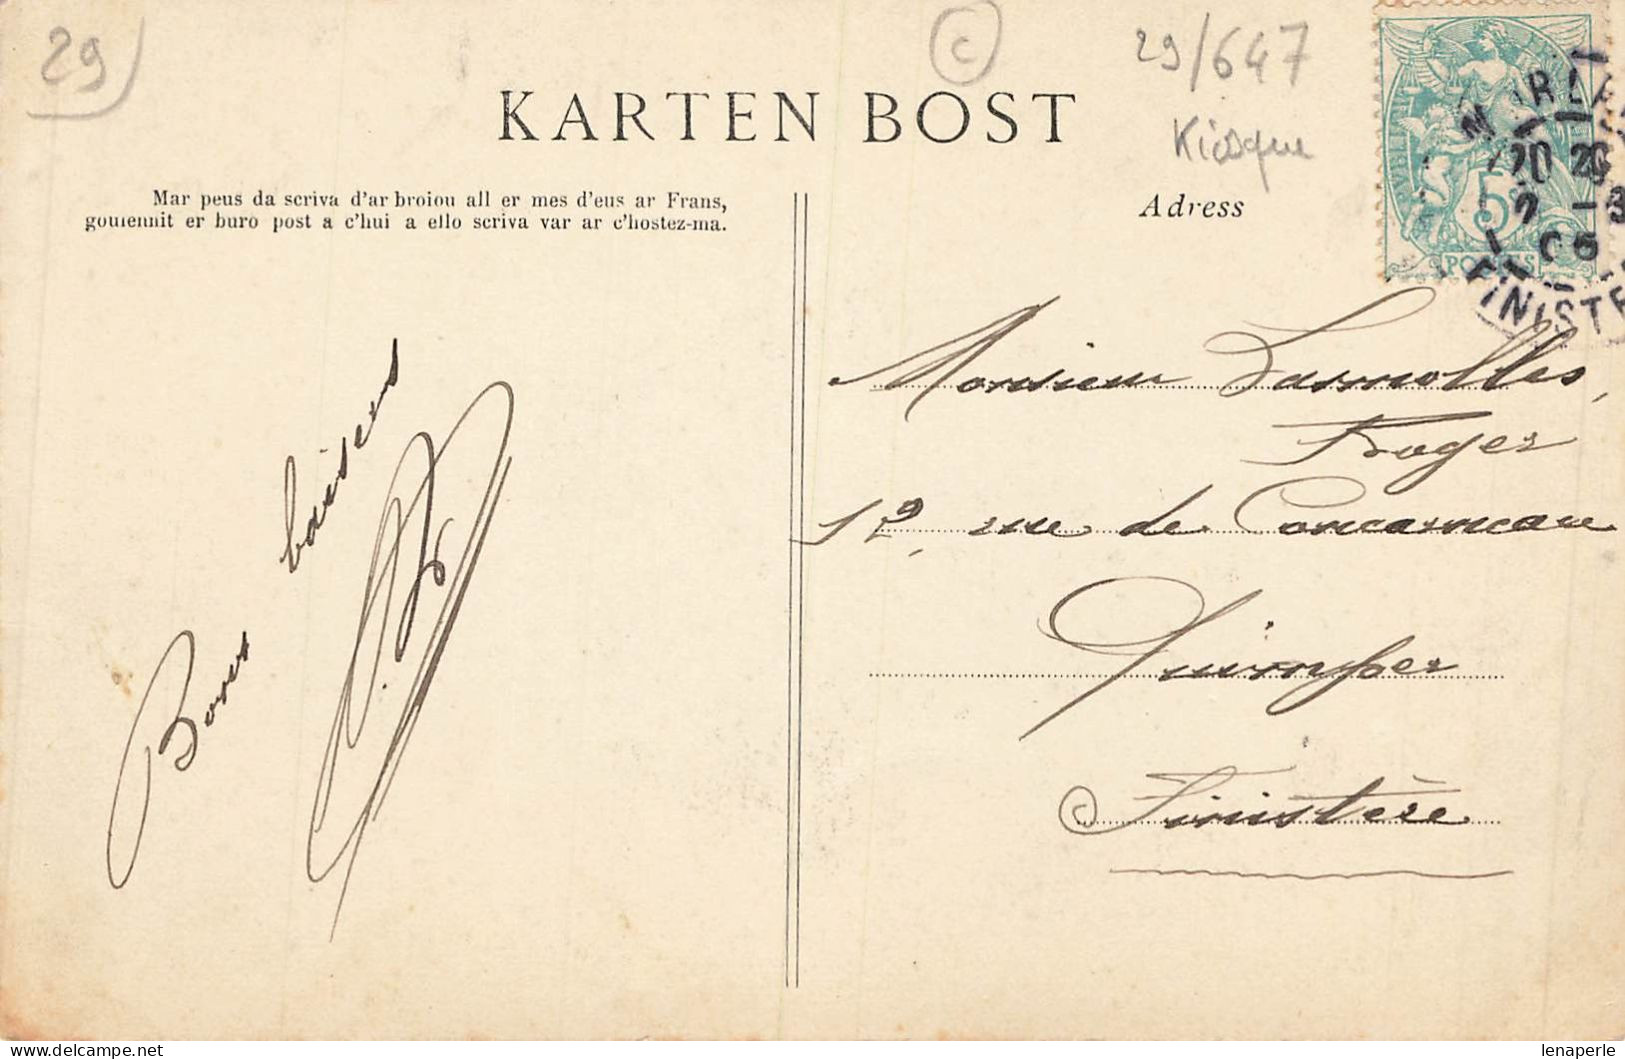 29
C
29/647
Kiosque
KARTEN BOST
Mar peus da scriva d'ar broiou all er mes d'eus ar Frans,
gouiennit er buro post a c'hui a ello scriva var ar c'hostez-ma.
Adress
5c
POSTES
20
05
FINISTE
Monsieur Lasmolles,
Roger
12, rue de Concarneau
Quimper
Finistère
Bons baisers
lenaperle